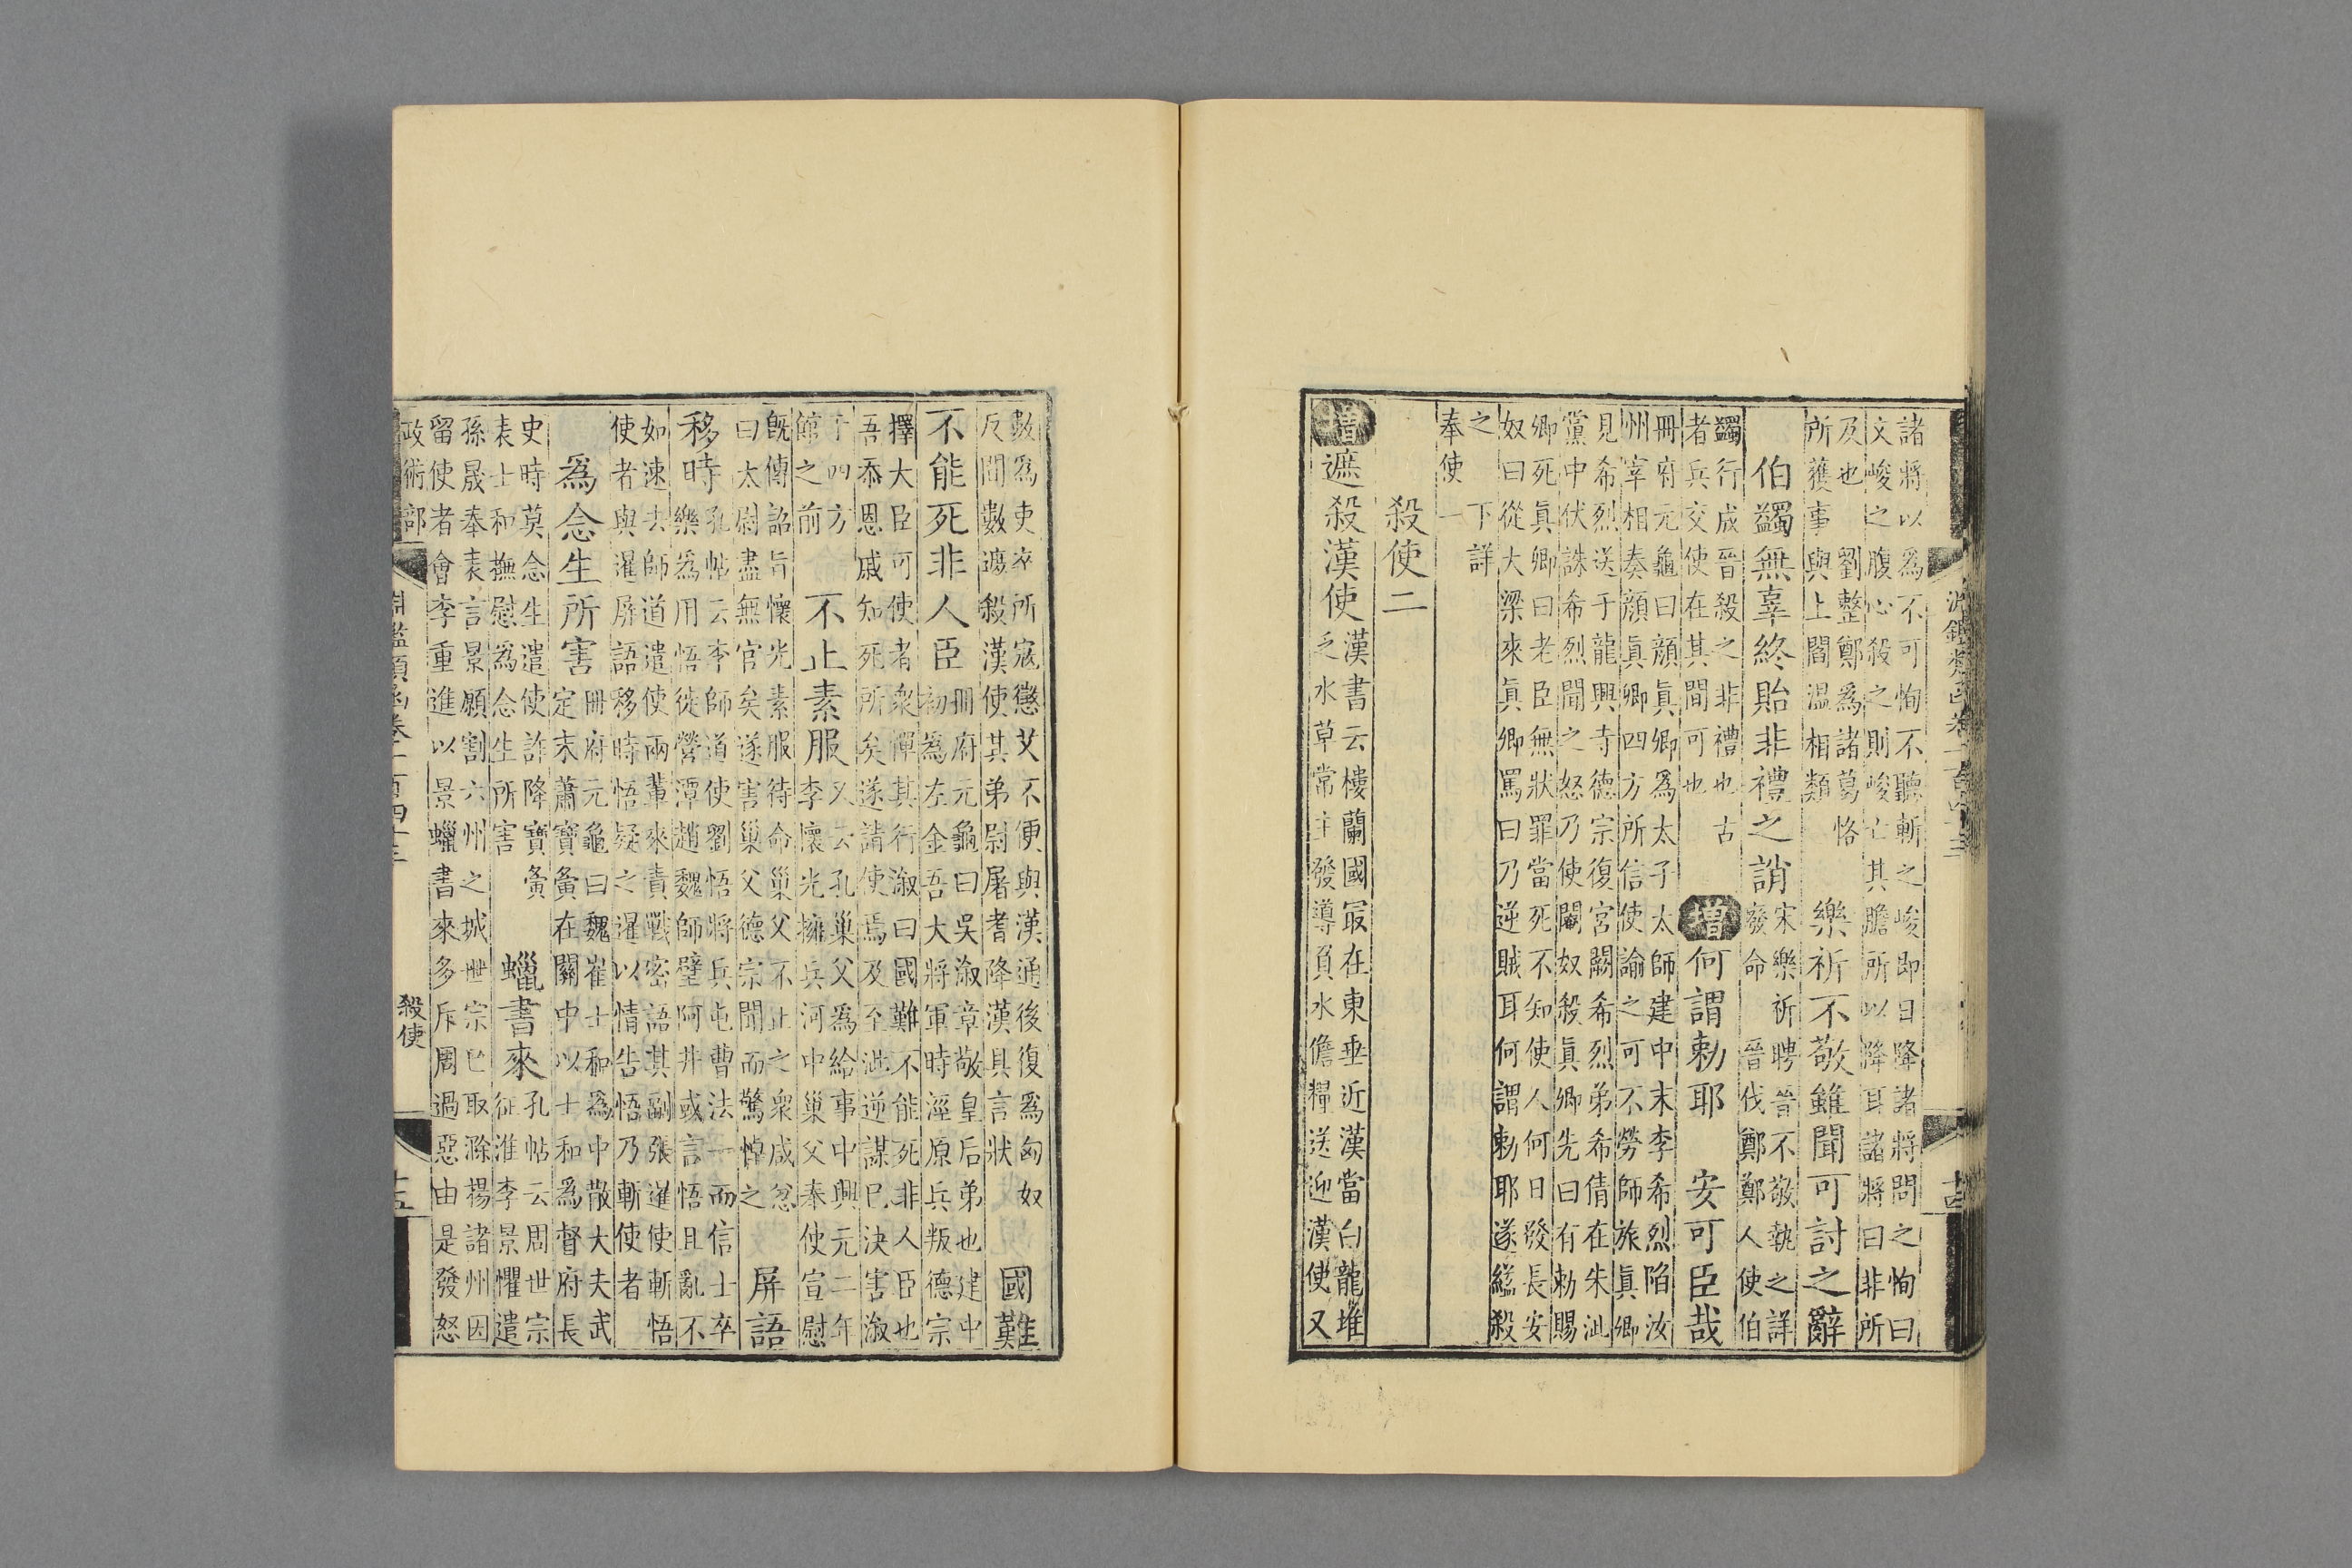 諸將以爲不可恂不聽斬之峻即日降諸將問之恂曰
文峻之腹心殺之則峻亡其膽所以降耳諸將曰非所
及也 劉整鄭爲諸葛恪
所獲事與上閻溫相類
樂祈不敬雖聞可討之辭
宋樂祈聘晉不敬執之詳
發命 晉伐鄭鄭人使伯
伯蠲無辜終貽非禮之誚
蠲行成晉殺之非禮也古
者兵交使在其間可也
增何謂勅耶 安可臣哉
冊府元龜曰顔真卿爲太子太師建中末李希烈陷汝
州宰相奏顔真卿四方所信使諭之可不勞師旅真卿
見希烈送于龍興寺德宗復宮闕希烈弟希倩在朱泚
黨中伏誅希烈聞之怒乃使閹奴殺真卿先曰有勅賜
卿死真卿曰老臣無狀罪當死不知使人何日發長安
奴曰從大梁來真卿罵曰乃逆賊耳何謂勅耶遂縊殺
之 下詳
奉使一
殺使二
增遮殺漢使
漢書云樓蘭國最在東垂近漢當白龍堆
乏水草常主發導負水儋糧送迎漢使又
淵鑑類函卷二百四十三
十四
數爲吏卒所寇懲艾不便與漢通後復爲匈奴
反間數遮殺漢使其弟尉屠耆降漢具言狀
國難
不能死非人臣
冊府元龜曰吳漵章敬皇后弟也建中
初爲左金吾大將軍時涇原兵叛德宗
擇大臣可使者衆憚其行漵曰國難不能死非人臣也
吾忝恩戚知死所矣遂請使焉及至泚逆謀已決害漵
于四方
館之前
不止素服
又云孔巢父爲給事中興元二年
李懷光擁兵河中巢父奉使宣慰
旣傳詔旨懷光素服待命巢父不止之衆咸忿
曰太尉盡無官矣遂害巢父德宗聞而驚悼之
屏語
移時
孔帖云李師道使劉悟將兵屯曹法一而信士卒
樂爲用悟徙營潭趙魏師壁阿井或言悟且亂不
如速去師道遣使兩輩來責戰密語其副張暹使斬悟
使者與暹屏語移時悟疑之暹以情告悟乃斬使者
爲念生所害
冊府元龜曰魏崔士和爲中散大夫武
定末蕭寶夤在關中以士和爲督府長
史時莫念生遣使詐降寶夤
表士和撫慰爲念生所害
蠟書來
孔帖云周世宗
征淮李景懼遣
孫晟奉表言景願割六州之城世宗已取滁揚諸州因
留使者會李重進以景蠟書來多斥周過惡由是發怒
政術部
淵鑑類函卷二百四十三
殺使
十五